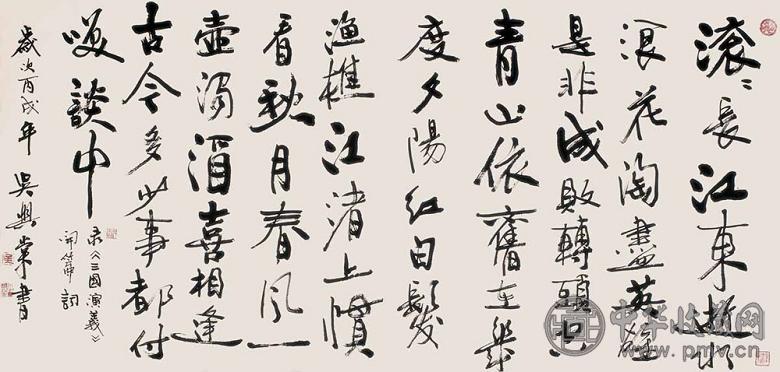 滚〻長江東逝水
浪花淘盡英雄
是非成敗轉頭空
青山依舊在幾
度夕陽紅白髮
漁樵江渚上慣
看秋月春風一
壺濁酒喜相逢
古今多少事都付
笑談中
录《三國演義》
開篇詞
歲次丙戌年 吳興棠書
中华收藏网
www.pmv.cn